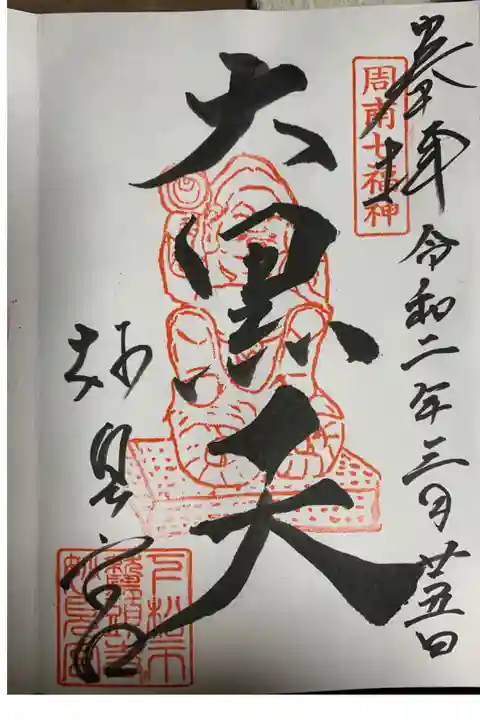 奉拝
周南七福神
令和二年三月廿五日
大黒天
妙見宮
下松市
鷲頭寺
妙見宮